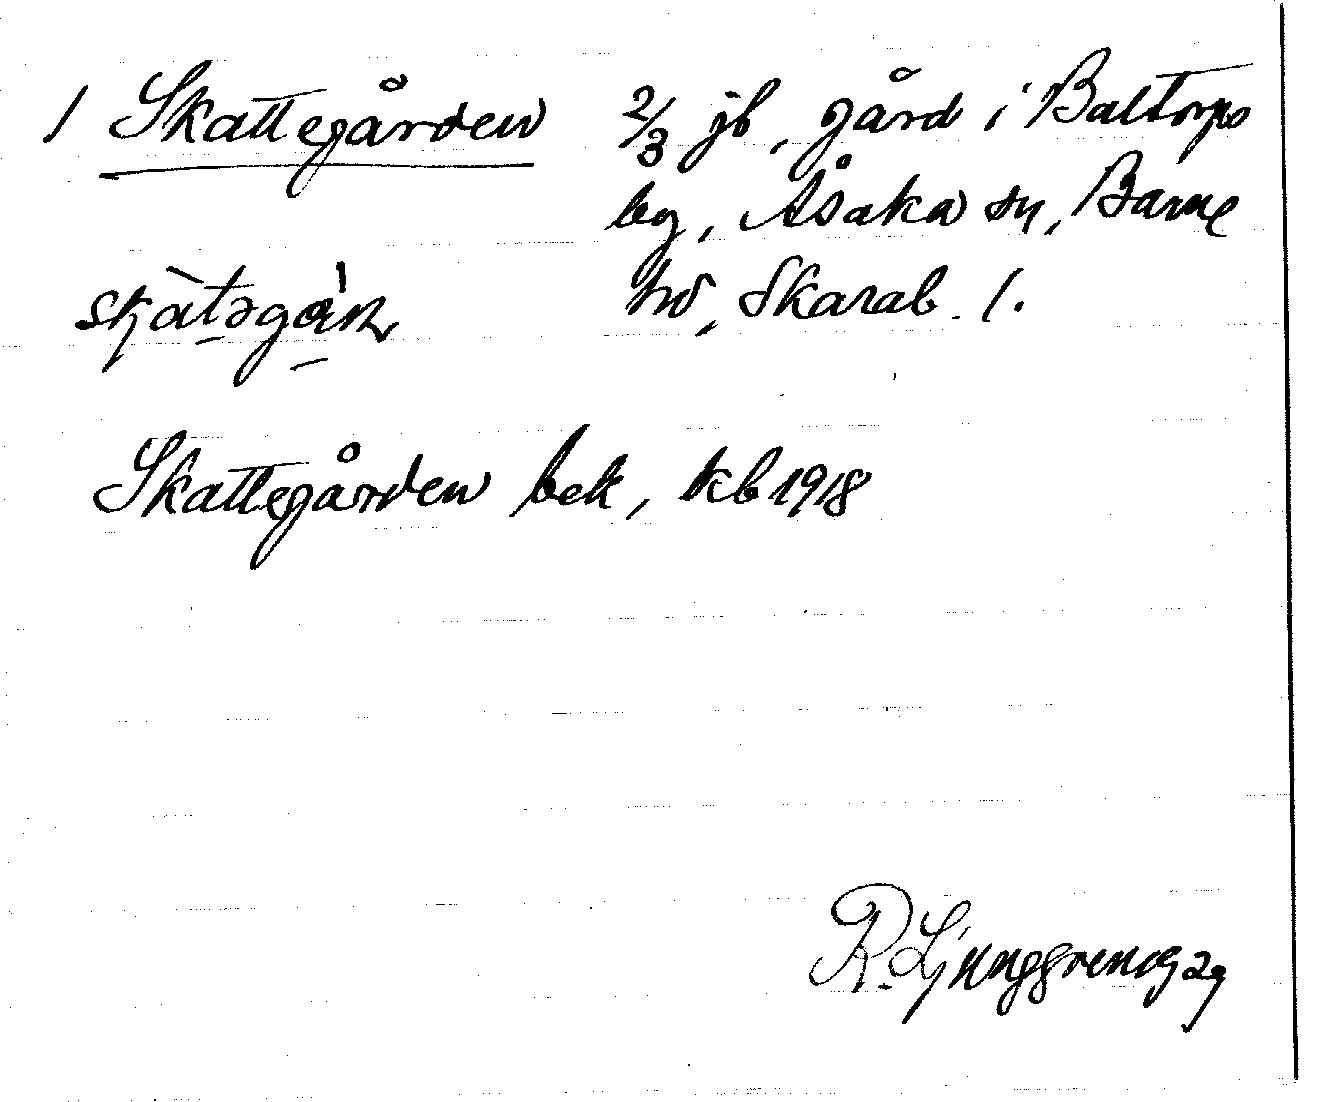 1 Skattegården 2/3 jb, gård i Baltorps
by, Åsaka sn, Barne
hd, Skarab. l.
skàtəgàɳ
Skattegården bek, kb 1918
R. Ljunggren 1929